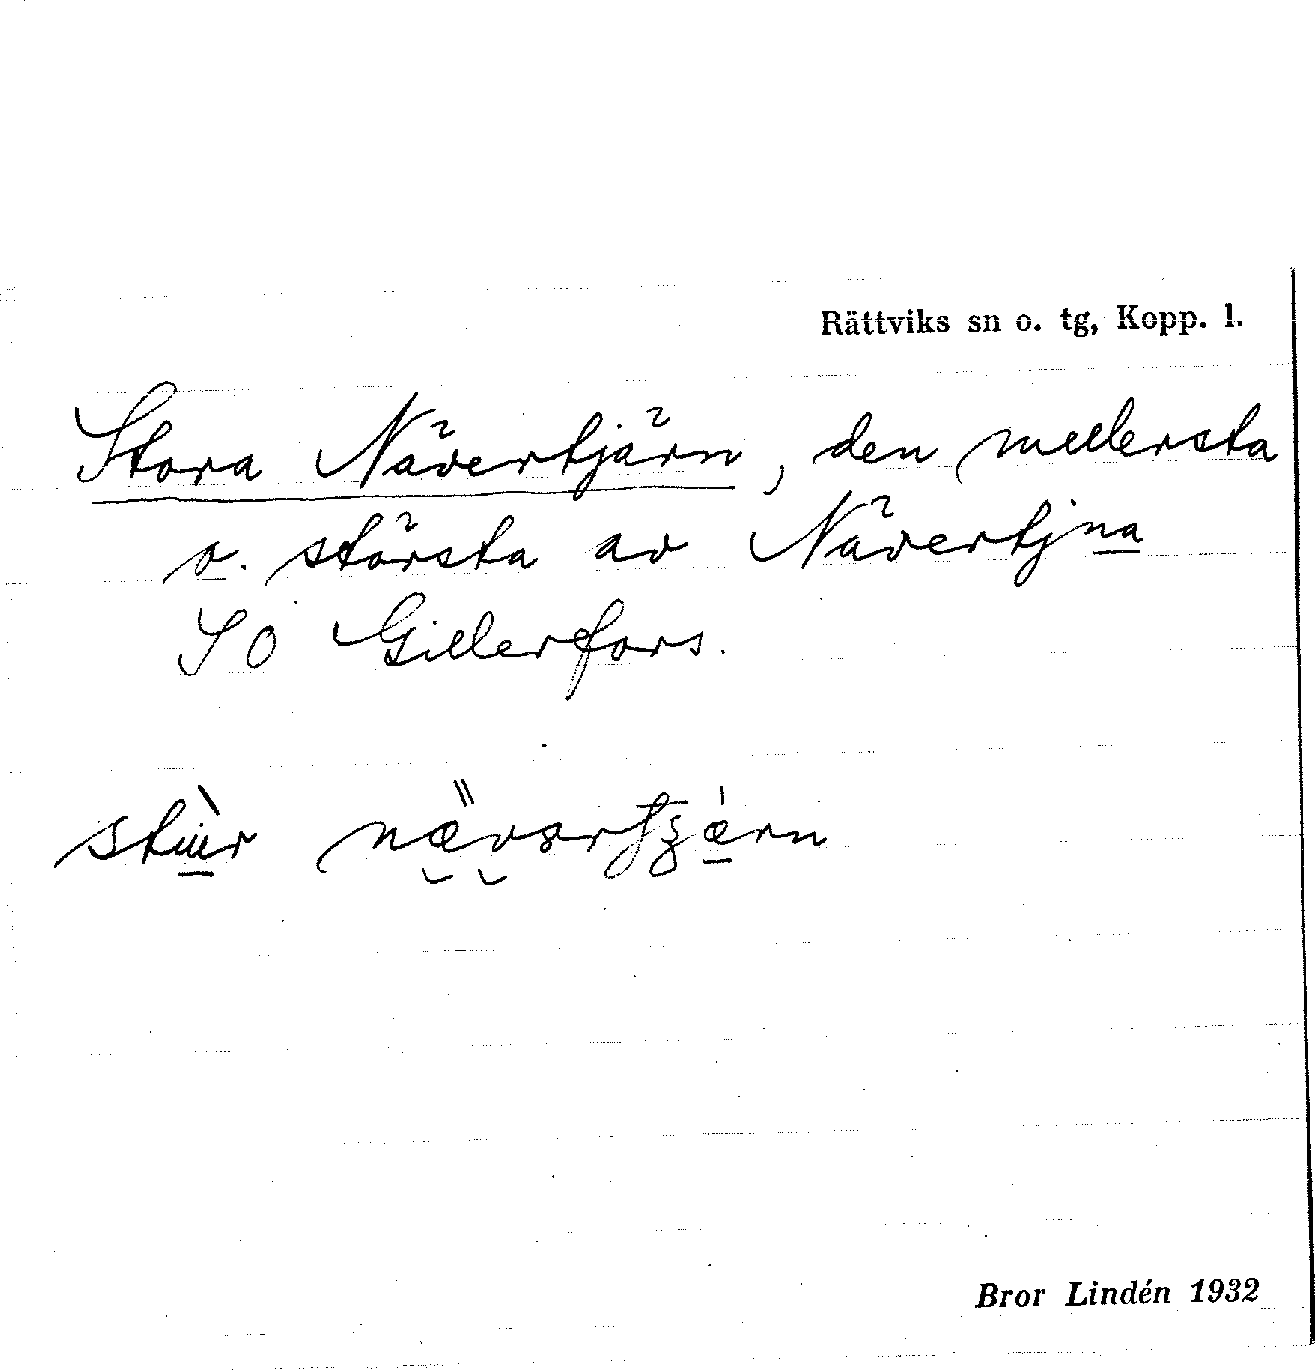 Rättviks sn o. tg, Kopp. l.
Stora Nävertjärn, den mellersta
o. största av Nävertjna
SO Gillerfors.
Bror Lindén 1932